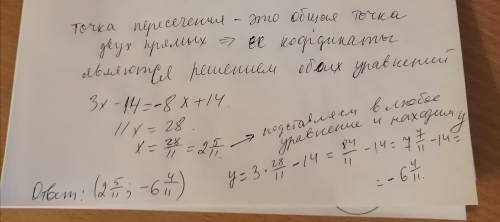 точка пересечения - это общая точка
двух прямых ⇒ её координаты
являются решением обоих уравнений
3x - 14 = -8x + 14.
11x = 28.
x = 28/11 = 2 5/11. → подставляем в любое
уравнение и находим y
y = 3 · 28/11 - 14 = 84/11 - 14 = 7 7/11 - 14 =
= -6 4/11.
Ответ: (2 5/11; -6 4/11)